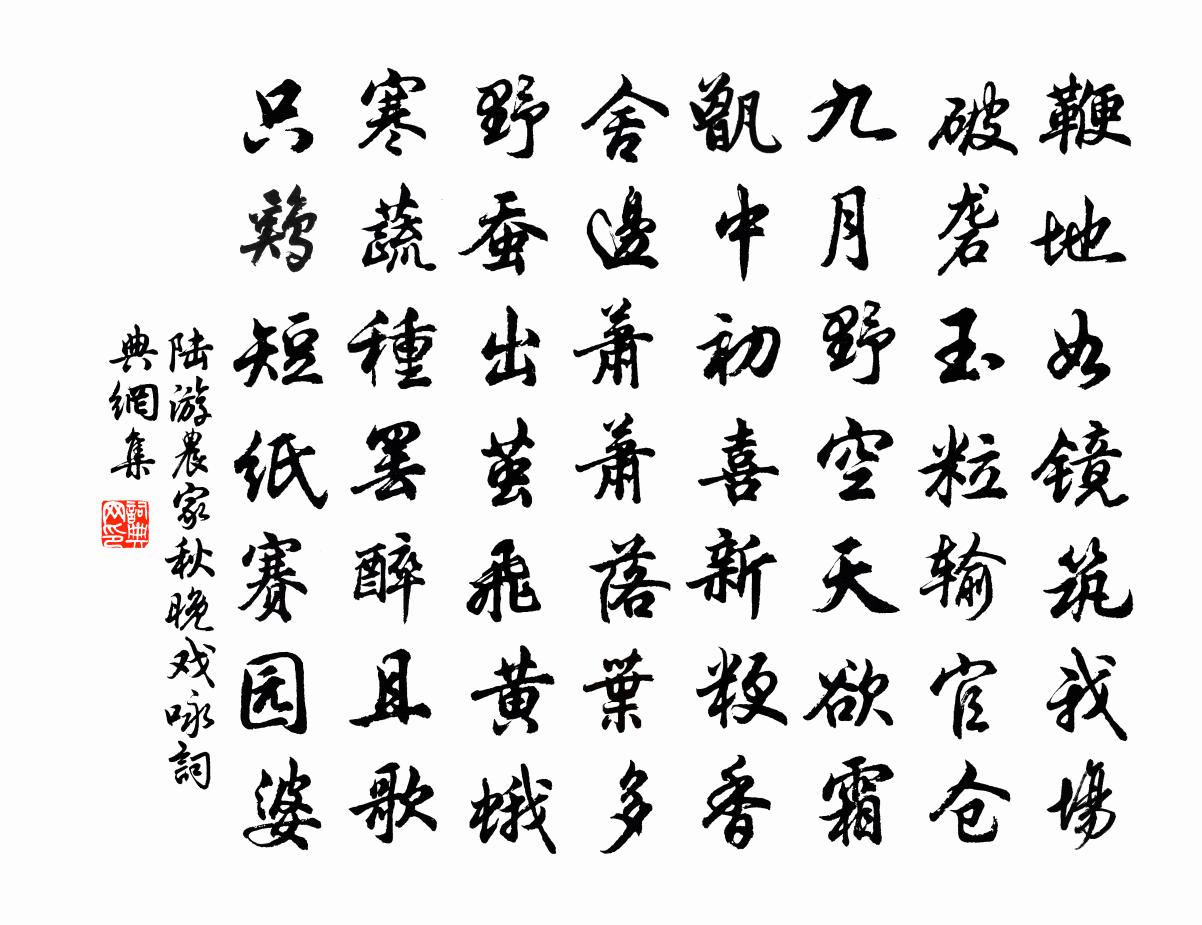 鞭地如镜筑我場
破砻玉粒输官仓
九月野空天欲霜
甑中初喜新粳香
舍邊萧萧落葉多
野蚕出茧飛黄蛾
寒蔬種罢醉且歌
只鷄短纸赛园婆
陆游農家秋晚戏咏詞
典網集
詞典
网印